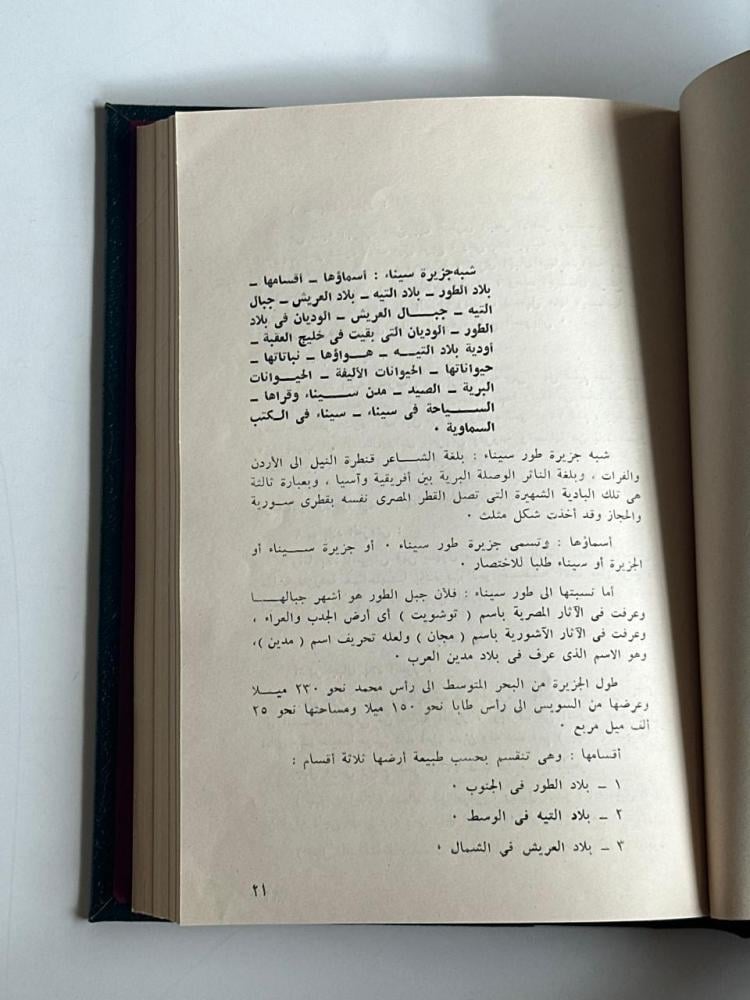 شبه جزيرة سيناء : أسماؤها ــ أقسامها ــ
بلاد الطور ــ بلاد التيه ــ بلاد العريش ــ جبال
التيه ــ جبــال العريش ــ الوديان فى بلاد
الطور ــ الوديان التى بقيت فى خليج العقبة ــ
أودية بلاد التيــه ــ هــواؤها ــ نباتاتها ــ
حيواناتها ــ الحيوانات الأليفة ــ الحيــوانات
البرية ــ الصيد ــ مدن ســيناء وقراها ــ
الســـياحة فى سيناء ــ سيناء فى الــكتب
السماوية ٠
شبه جزيرة طور سيناء : بلغة الشــاعر قنطرة النيل الى الأردن
والفرات ، وبلغة الناثر الوصلة البرية بين أفريقية وآسيا ، وبعبارة ثالثة
هى تلك البادية الشهيرة التى تصل القطر المصرى نفسه بقطرى ســورية
والحجاز وقد أخذت شكل مثلث ٠
أسماؤها : وتسمى جزيرة طور سيناء ٠ أو جزيرة ســيناء أو
الجزيرة أو سيناء طلبا للاختصار ٠
أما نسبتها الى طور سيناء : فلأن جبل الطور هو أشهر جبالهــا
وعرفت فى الآثار المصرية باسم ( توشويت ) أى أرض الجدب والعراء ،
وعرفت فى الآثار الآشورية باسم ( مجان ) ولعله تحريف اسم ( مدين )،
وهو الاسم الذى عرف فى بلاد مدين العرب ٠
طول الجزيرة من البحر المتوسط الى رأس محمد نحو ٢٣٠ ميــلا
وعرضها من السويس الى رأس طابا نحو ١٥٠ ميلا ومساحتها نحو ٢٥
ألف ميل مربع ٠
أقسامها : وهى تنقسم بحسب طبيعة أرضها ثلاثة أقسام :
١ ــ بلاد الطور فى الجنوب ٠
٢ ــ بلاد التيه فى الوسط ٠
٣ ــ بلاد العريش فى الشمال ٠
٢١